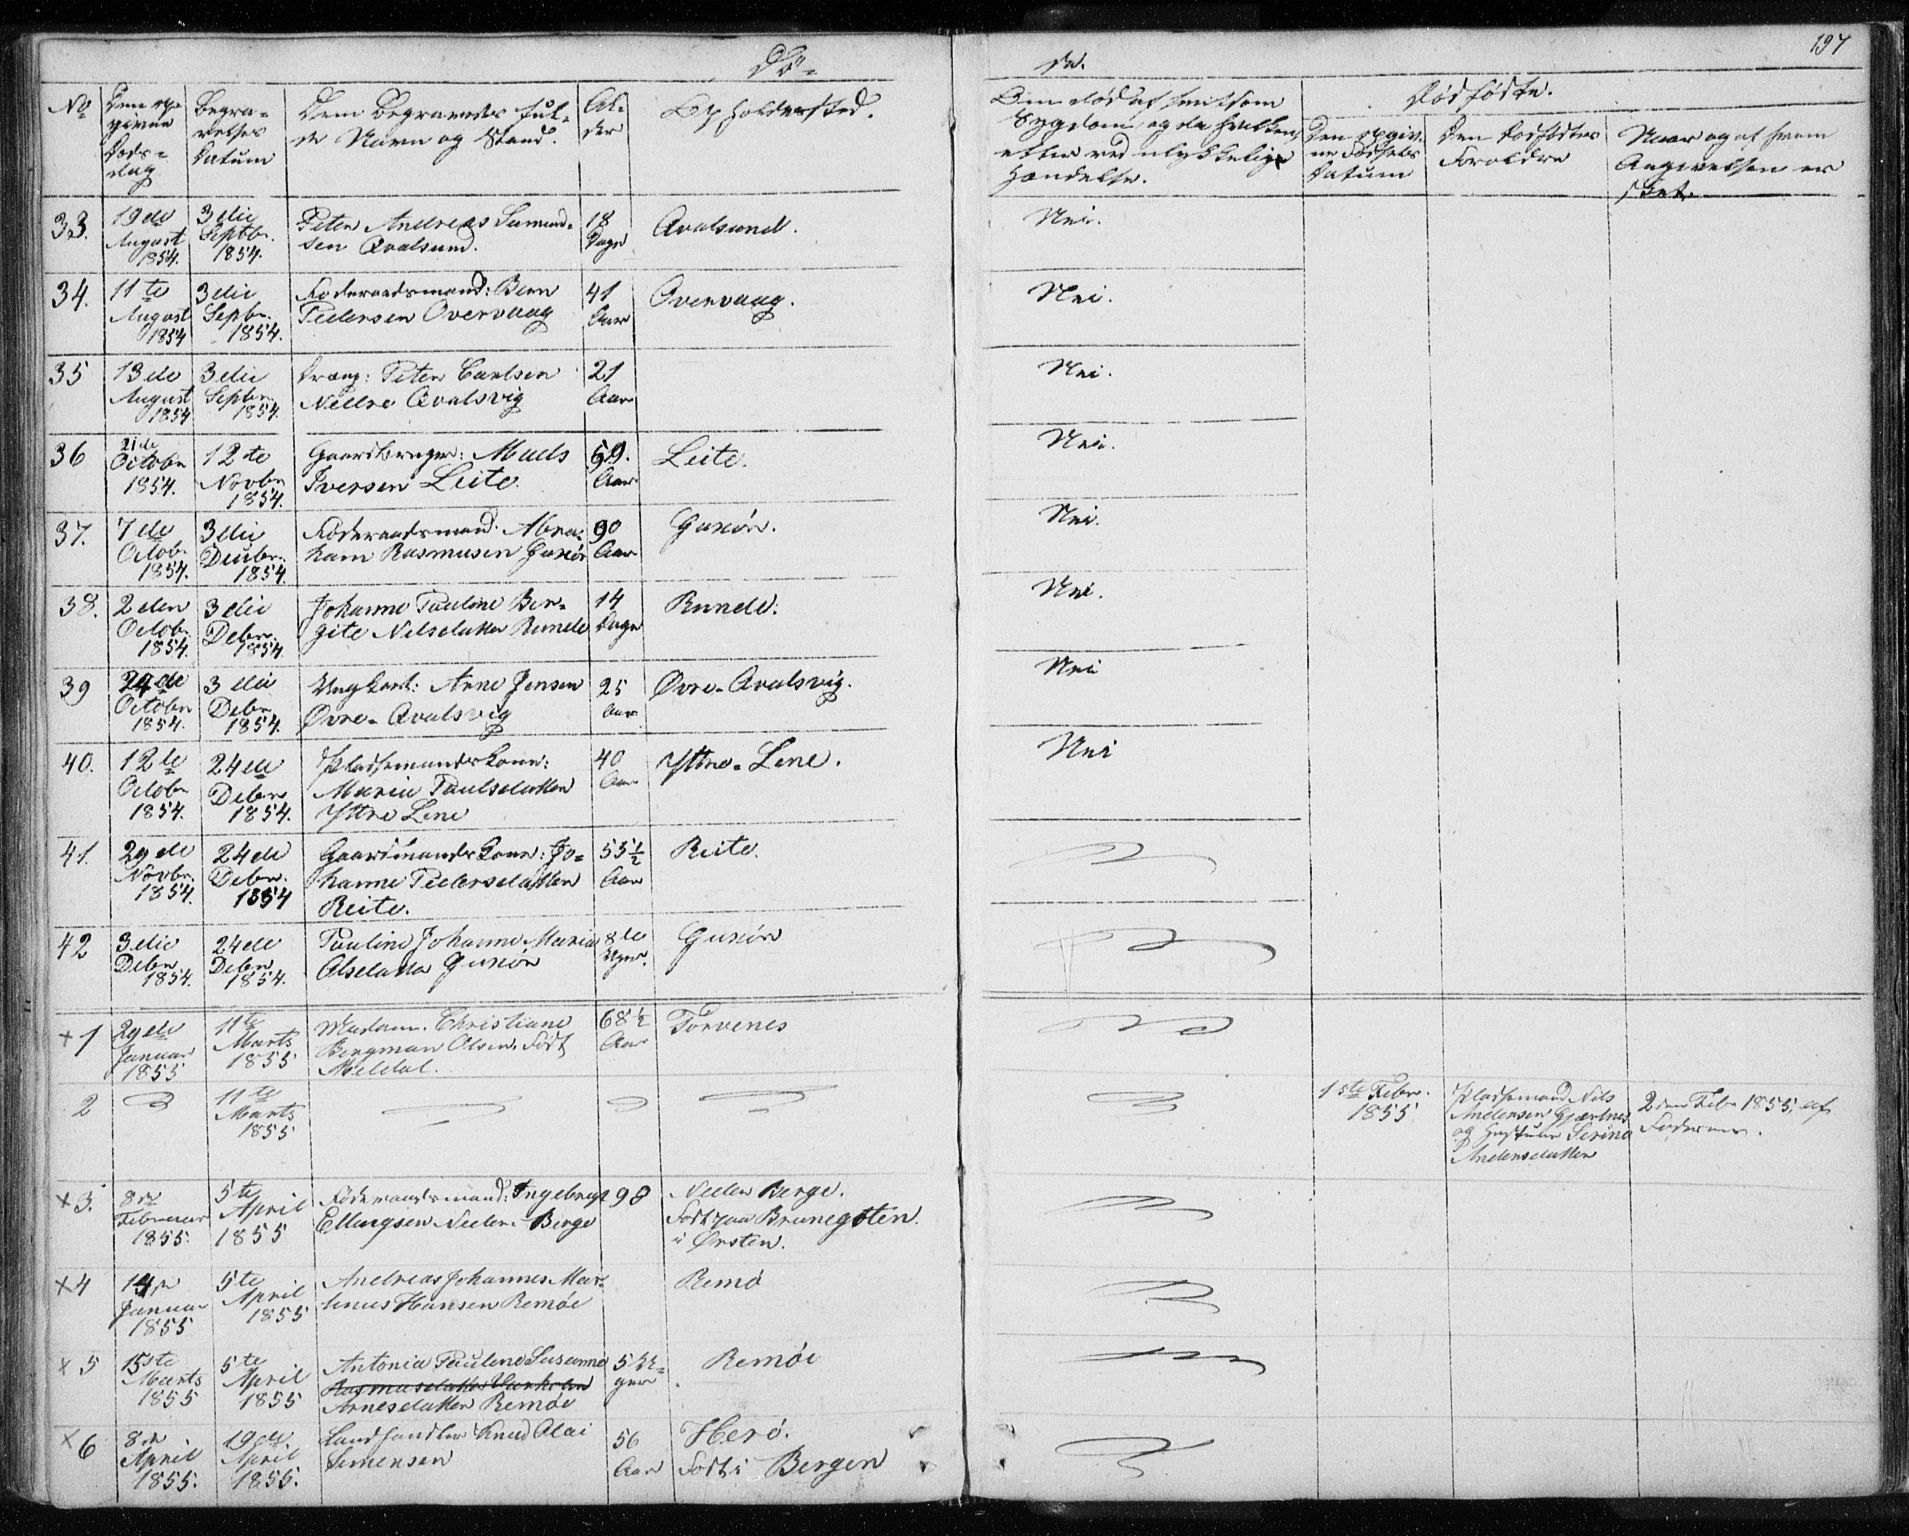 197
Dø-
de.
No
Den op-
givne
Døds-
dag
Begra-
velses
Datum
Den Begravedes ful-
de Navn og Stand.
Al-
der
Opholdssted.
Om død af smitsom
Sygdom, og da hvilken,
eller ved ulykkelig
Hændelse.
Dødfødte.
Den opgiv-
ne Fødsels
Datum
Den Dødfødtes
Forældre
Naar og af hvem
Angivelsen er
skeet.
33.
19de
August
1854.
3die
Septbr.
1854.
Peter Andreas Samund-
sen Qvalsund.
18
Dage
Qvalsund.
Nei.
34.
11te
August
1854
3die
Septbr.
1854.
Føderaadsmand: Bern
Pedersen Overvaag
41
Aar
Overvaag.
Nei.
35
13de
August
1854
3die
Septbr.
1854.
Dreng: Peter Carlsen
Nedre Qvalsvig
21
Aar
Nei.
36
21de
Octobr
1854.
12te
Novbr
1854.
Gaardbruger: Mads
Iversen Leite.
59.
Aar
Leite.
Nei.
37.
7de
Octobr.
1854.
3die
Decbr.
1854.
Føderaadsmand: Abra-
ham Rasmusen Gurør
90
Aar
Gurør.
Nei.
38.
2den
Octobr.
1854.
3die
Debr.
1854
Johanne Pauline Ber-
gite Nilsdatter Runde
14
Dage
Runde.
Nei.
39
24de
Octobr
1854.
3die
Debr.
1854.
Ungkarl: Arne Jensen
Øvre-Qvalsvig
25
Aar
Øvre-Qvalsvig.
Nei
40.
12te
Octobr
1854.
24de
Debr
1854.
Pladsemandskone:
Maria Paulsdatter
Yttre Lene
40
Aar
Yttre-Lene.
Nei
41.
29de
Novbr.
1854.
24de
Debr.
1854
Gaardmandskone: Jo-
hanne Pedersdatter
Reite.
55½
Aar
Reite.
42
3die
Debr.
1854.
24de
Debr
1854.
Pauline Johanne Maria
Olsdatter Gurør
8te
Uger.
Gurør
× 1
29de
Januar
1855
11te
Marts
1855
Madam. Christiane
Bergman Olsen. Født
Meldal.
68½
Aar
Torvenes
2
11te
Marts
1855
1ste Febr.
1855
Pladsemand Nils
Andersen Gjærtnes
og Hustrue Serina
Andersdatter
2den Feb. 1855 af
Faderen.
× 3.
8de
Februar
1855.
5te
April
1855
Føderaadsmand: Ingebrigt
Ellingsen Nedre-Berge
98
Nedre Berge.
Født paa Brunegoten
i Ørsten.
× 4
14de
Januar
1855
5te
April
1855
Andreas Johannes Mar-
tinus Hansen Remøe
Remø
× 5
15de
Marts
1855
5te
April
1855
Antonia Pauline Susanne
Rasmusdatter
Arnesdatter Remøe
5 U-
ger
Remøe
× 6
8de
April
1855.
19de
April
1855.
Landhandler Knud Olai
Simensen
56
Aar
Herø.
Født i Bergen